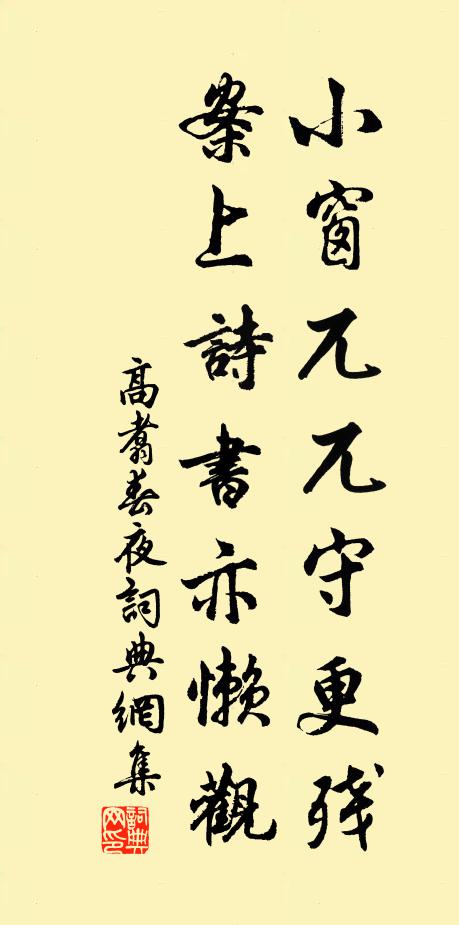 小窗兀兀守更残
案上詩書亦懶觀
高翥春夜詞典網集
詞典網印